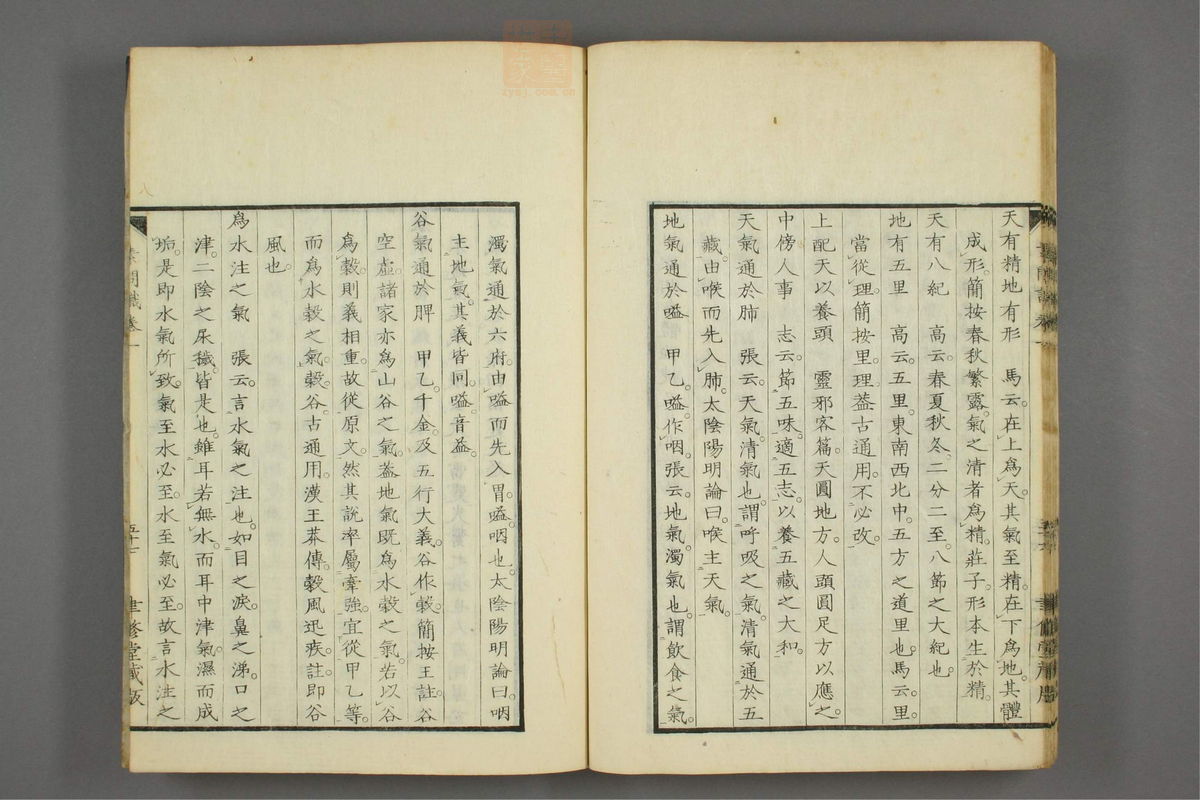 天有精地有形　馬云。在上爲天。其氣至精。在下爲地。其體
成形。簡按春秋繁露。氣之清者爲精。莊子。形本生於精。
天有八紀　高云。春夏秋冬。二分二至。八節之大紀也。
地有五里　高云。五里。東南西北中。五方之道里也。馬云。里。
當從理。簡按里。理。益古通用。不必改。
上配天以養頭　靈邪客篇。天圓地方。人頭圓足方以應之
中傍人事　志云。節五味。適五志。以養五藏之大和。
天氣通於肺　張云。天氣。清氣也。謂呼吸之氣。清氣通於五
藏。由喉而先入肺。太陰陽明論曰。喉主天氣。
地氣通於嗌　甲乙。嗌。作咽。張云。地氣。濁氣也。謂飲食之氣。
濁氣通於六府。由嗌而先入胃。嗌。咽也。太陰陽明論曰。咽
主地氣。其義皆同。嗌音益。
谷氣通於脾　甲乙。千金。及五行大義。谷作穀。簡按王註。谷
空虛。諸家亦爲山谷之氣。葢地氣既爲水穀之氣。若以谷
爲穀。則義相重。故從原文。然其説率屬牽強。宜從甲乙等。
而爲水穀之氣。穀。谷。古通用。漢王莽傳。穀風迅疾。註。即谷
風也。
爲水注之氣　張云。言水氣之注也。如目之淚。鼻之涕。口之
津。二陰之尿穢。皆是也。雖耳若無水。而耳中津氣。濕而成
垢。是即水氣所致。氣至水必至。水至氣必至。故言水注之
素問識卷一
五十七
聿修堂藏版
zysj.com.cn